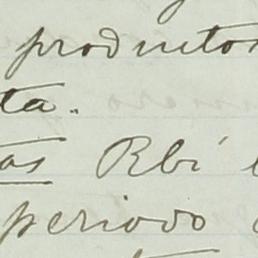 productos
ta.
as Rbí
periodo